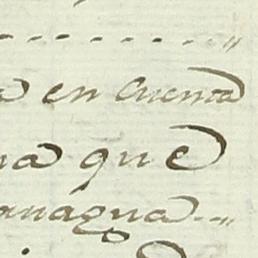 a en Cuenta
na que
anagua..,,